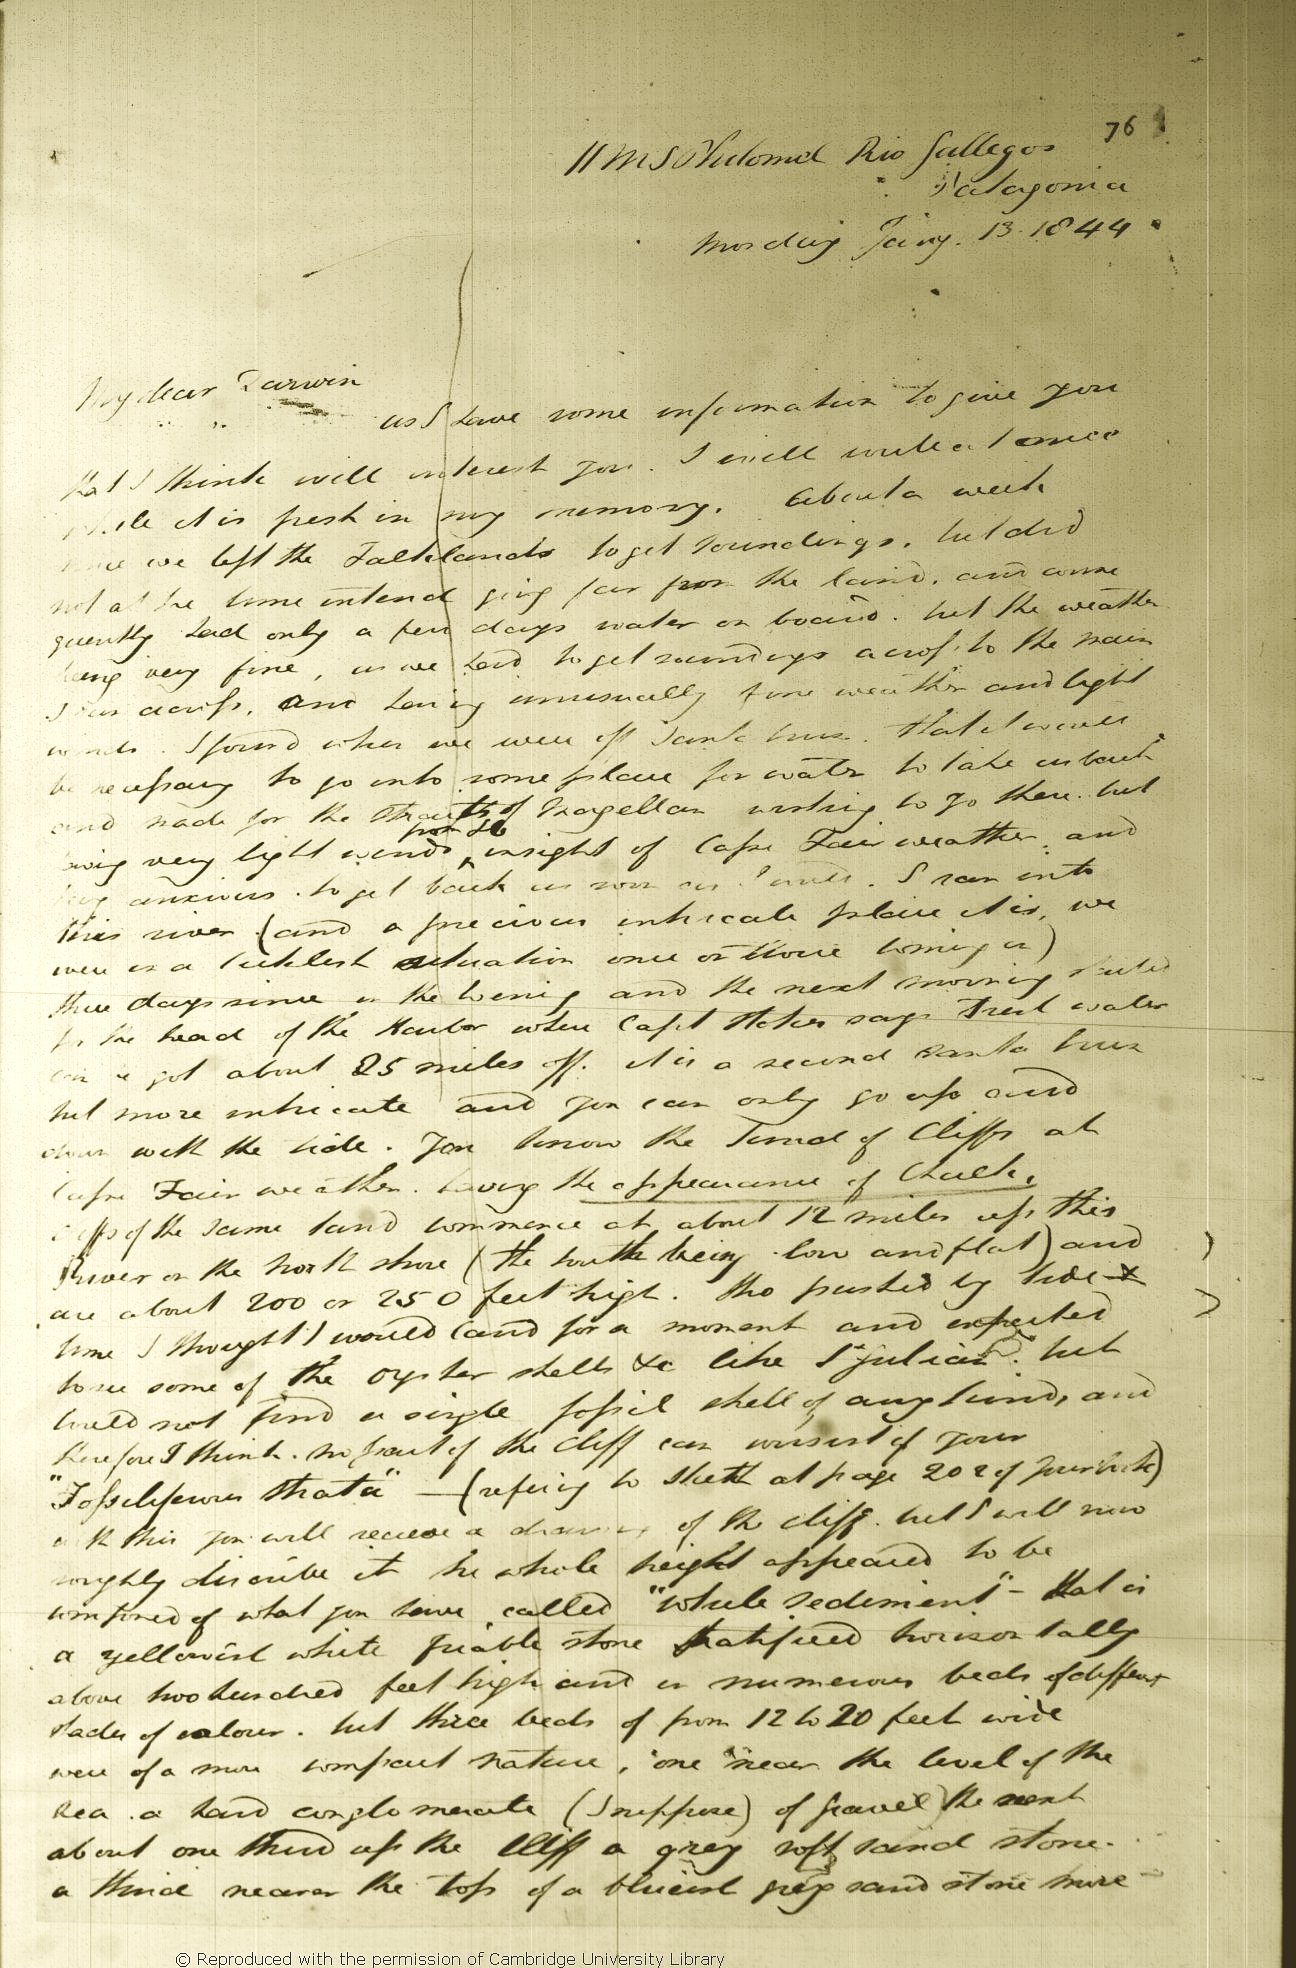 76
HMS Philomel Rio Gallegos
Patagonia
Monday Jany. 13. 1844
My dear Darwin
as I have some information to give you
that I think will interest you. I will write at once
while it is fresh in my memory. About a week
since we left the Falklands to get soundings. but did
not at the time intend going far from the land. and conse
quently had only a few days water on board. but the weather
being very fine, as we had to get soundings across to the main
I ran across. and having unusually fine weather and light
winds. I found when we were off Santa Cruz. that it would
be necessary to go into some place for water to take us back
and made for the Straits of Magellan wishing to go there. but
having very light winds from SE insight of Cape Fairweather. and
being anxious to get back as soon as I could. I ran into
this river (and a precious intricate place it is, we
were in a ticklish situation once or twice coming in)
three days since in the evening and the next morning started
for the head of the Harbor where Capt Stokes says Fresh water
can be got about 25 miles off. it is a second Santa Cruz
but more intricate and you can only go up and
down with the tide. You know the Land of Cliffs at
Cape Fairweather. having the appearance of Chalk.
Cliffs of the same land commence at about 12 miles up this
River on the north shore (the south being low and flat) and
are about 200 or 250 feet high. tho pushed by tide &
time I thought I would land for a moment and expected
to see some of the oyster shells &c like St Julian. but
could not find a single fossil shell of any kind, and
therefore I think. no part of the cliff can consist of your
"Fossiliferous Strata" — (refering to Sketch at page 202 of your book)
with this you will receive a drawing of the cliff. but I will now
roughly discribe it the whole height appeared to be
composed of what you have called "white sediment" - that is
a yellowish white friable stone stratified horizontally
above two hundred feet high and in numerous beds of different
shades of colour. but three beds of from 12 to 20 feet wide
were of a more compact nature, one near the level of the
sea. a hard conglomerate (I suppose) of gravel the next
about one third up the Cliff a grey soft sand stone.
a third nearer the top of a blueish grey sand stone more
© Reproduced with the permission of Cambridge University Library